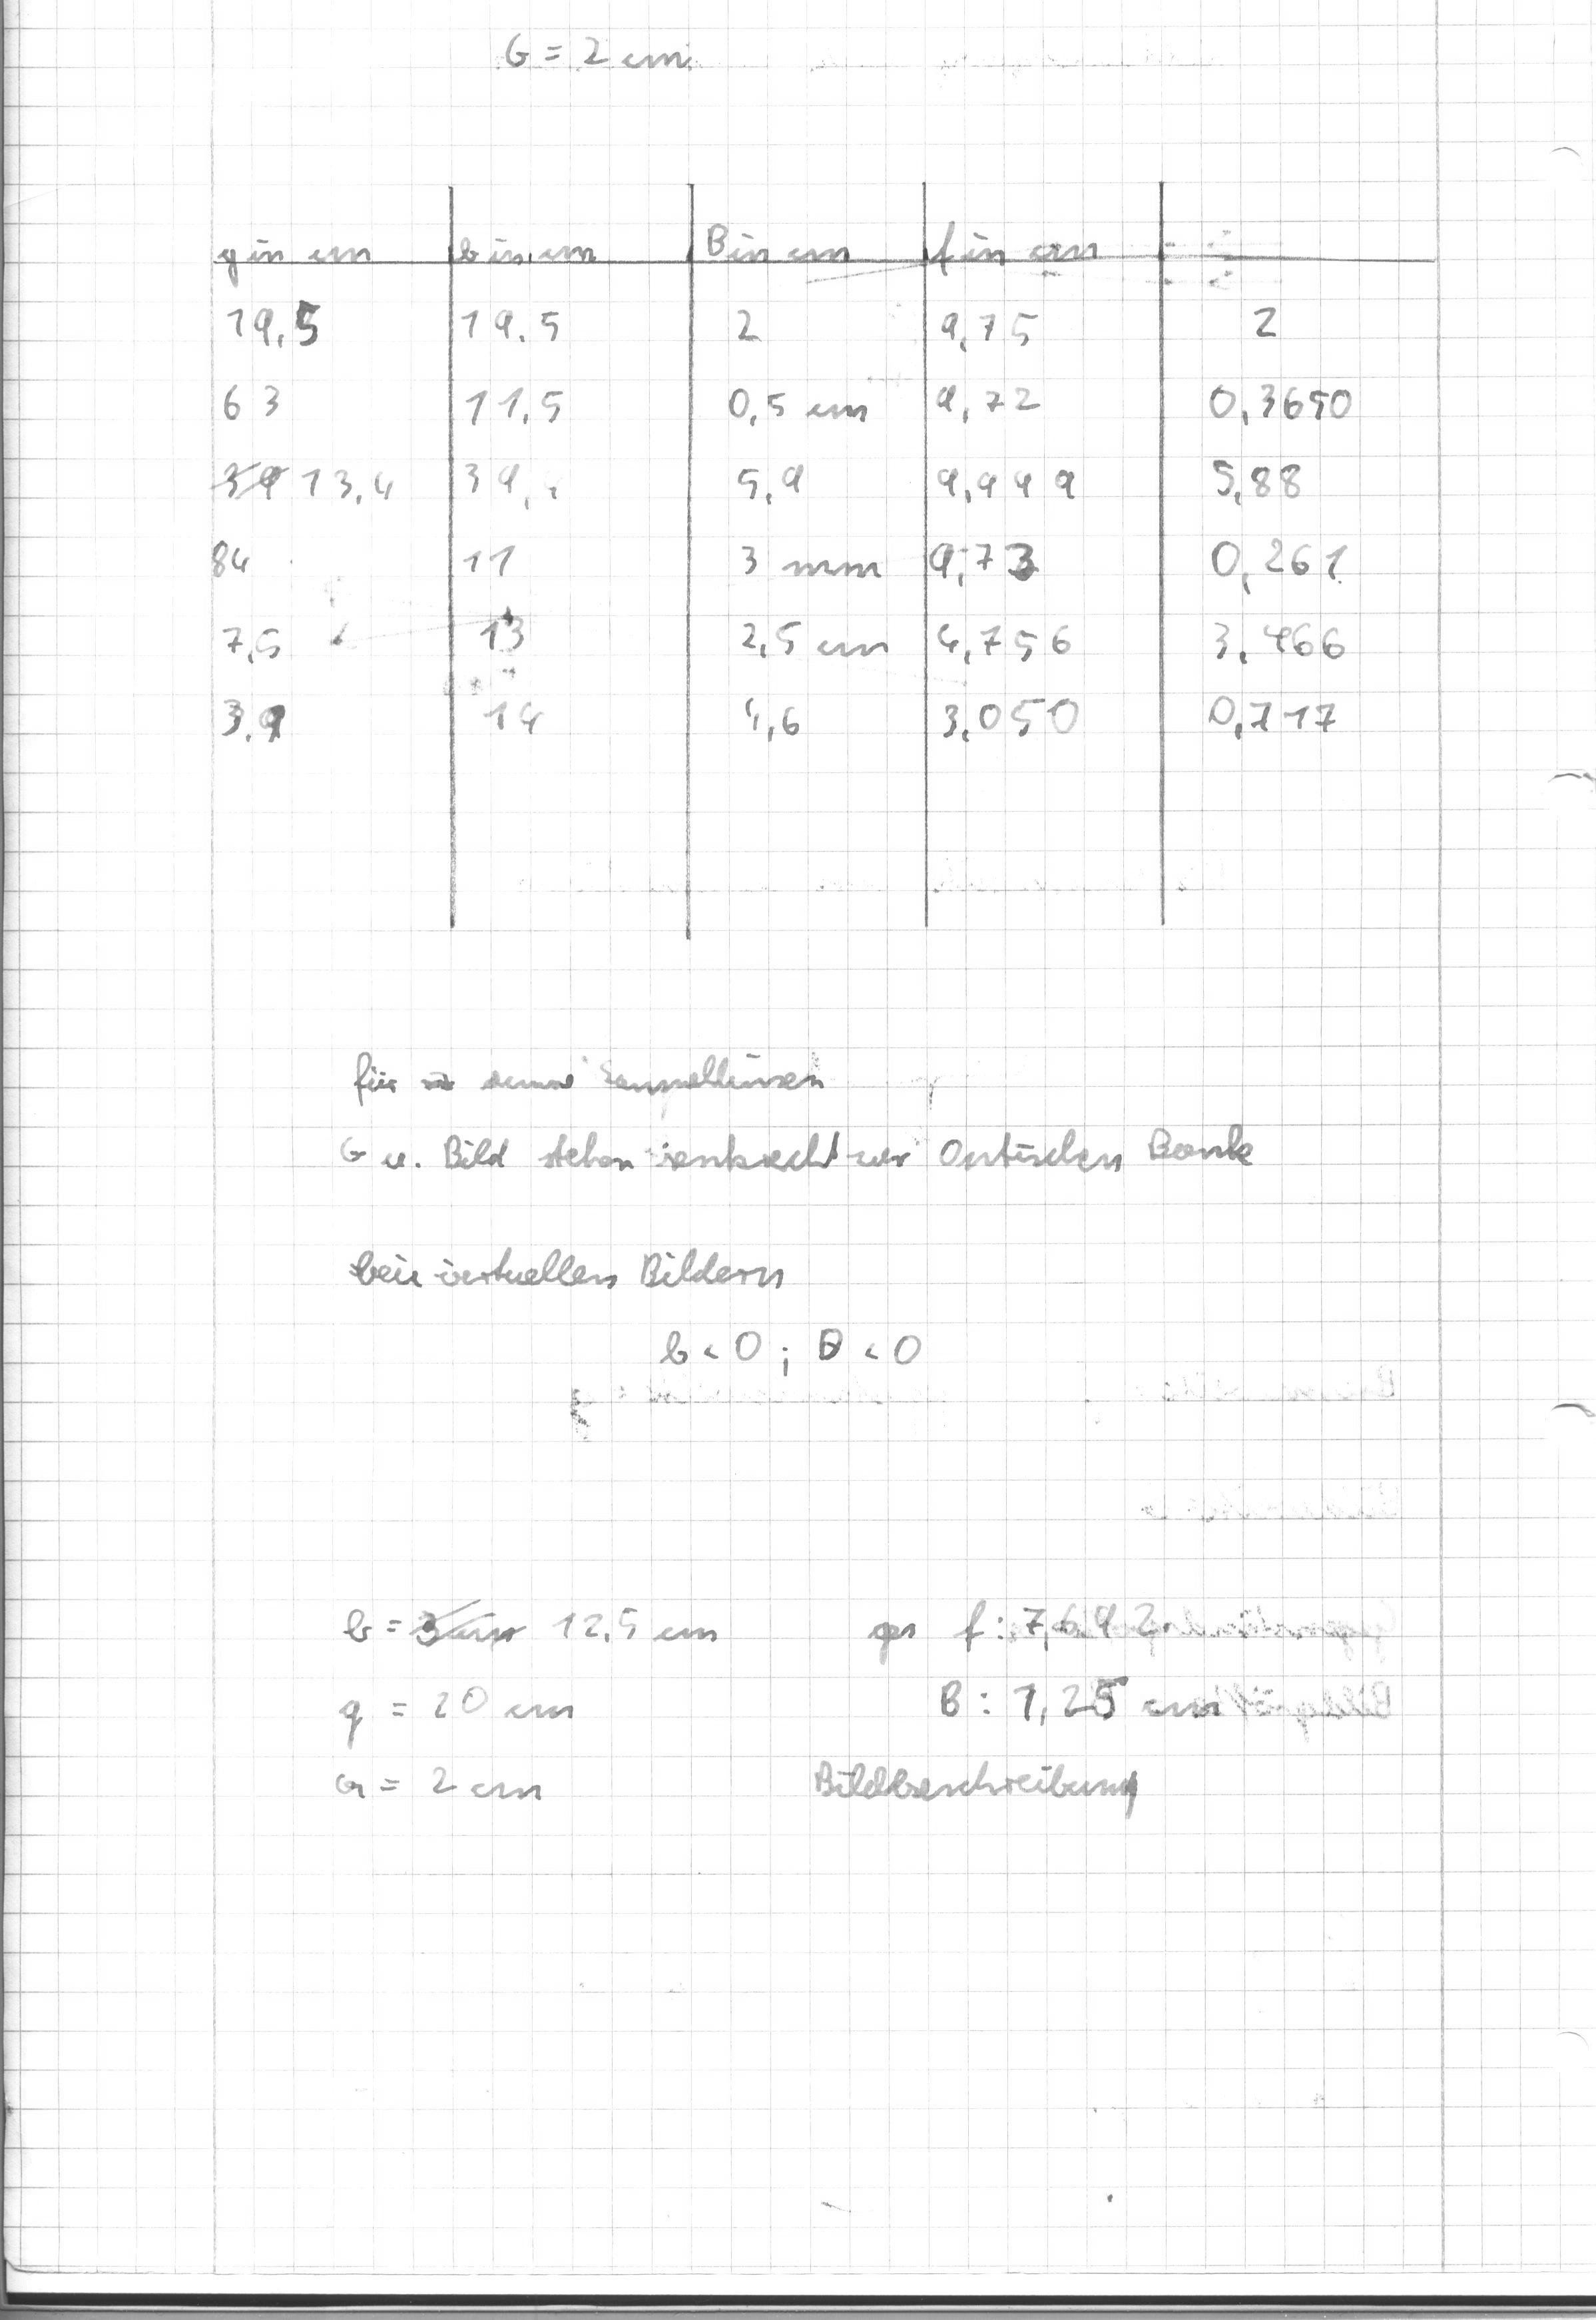 G = 2 cm
g in cm b in cm B in cm f in cm
19,5 19,5 2 9,75 2
63 11,5 0,5 cm 9,72 0,3650
39 13,4 39, 5,9 9,999 5,88
84 11 3 mm 9,73 0,261
7,5 13 2,5 cm 4,756 3,466
3,9 14 4,6 3,050 0,717
für dünne Sammellinsen
G u. Bild stehen senkrecht zur Optischen Bank
bei virtuellen Bildern
b < 0 ; B < 0
b = 3 cm 12,5 cm ges f : 7,692
g = 20 cm B : 1,25 cm
G = 2 cm Bildbeschreibung